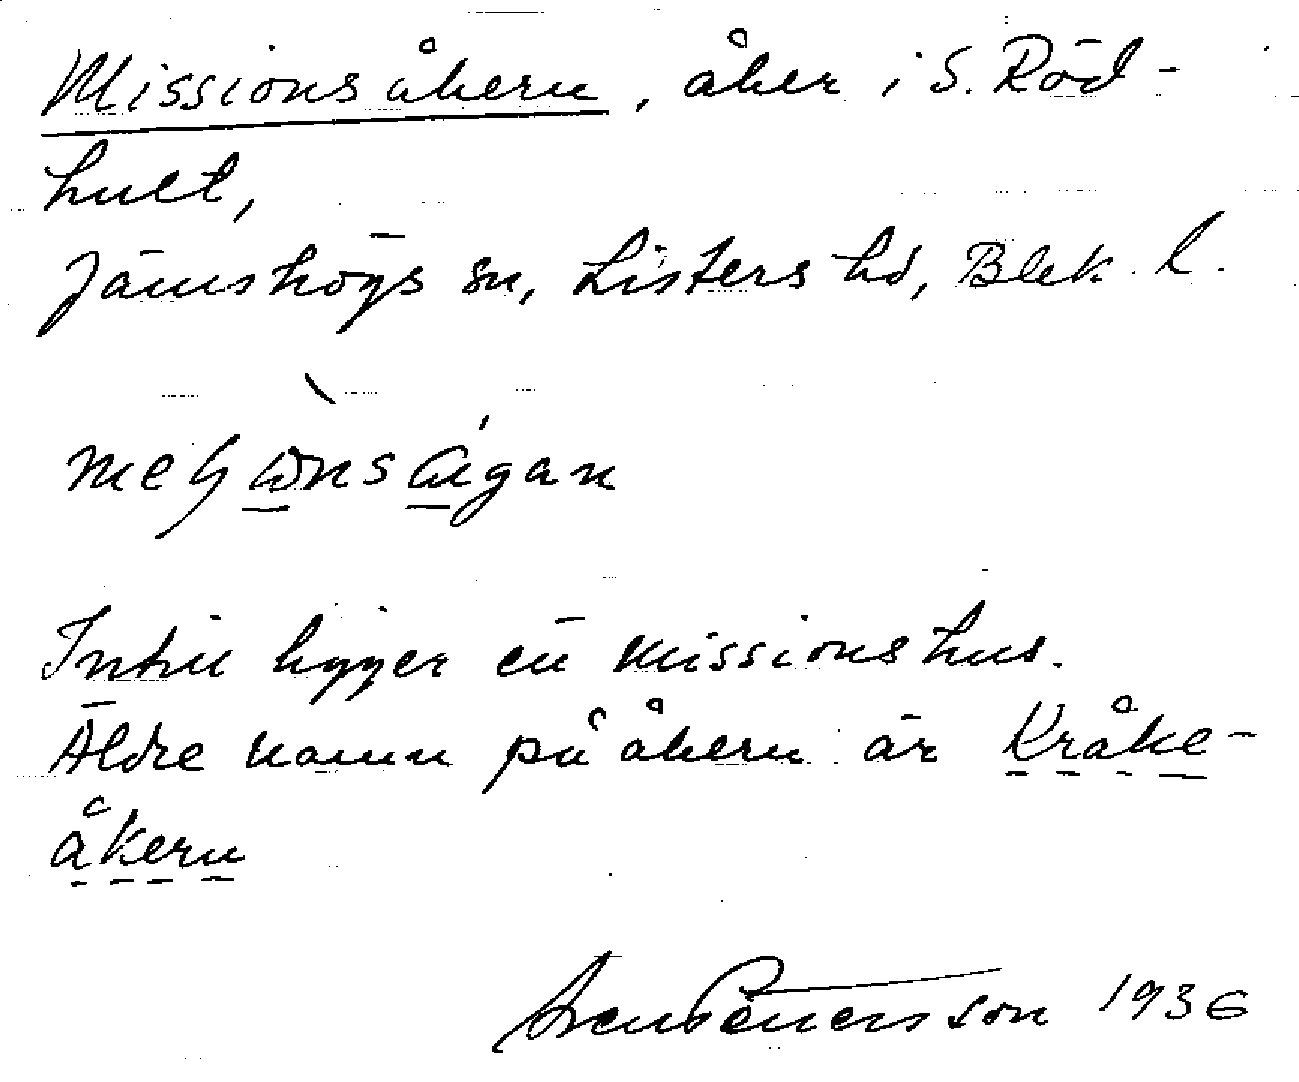 Missionsåkern, åker i S. Röd-
hult,
Jämshögs sn, Listers hd, Blek. l.
Intill ligger ett missionshus.
Äldre namn på åkern är Kråke-
åkern
Sven Petersson 1936